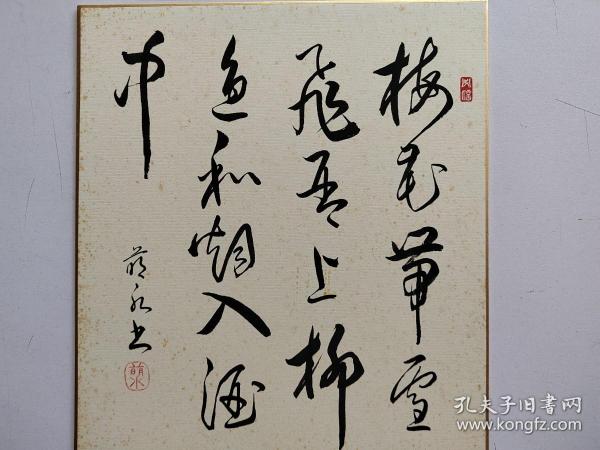 梅花帯雪
飛琴上柳
色和烟入酒
中
萠水書
萠水
孔夫子旧书网
www.kongfz.com